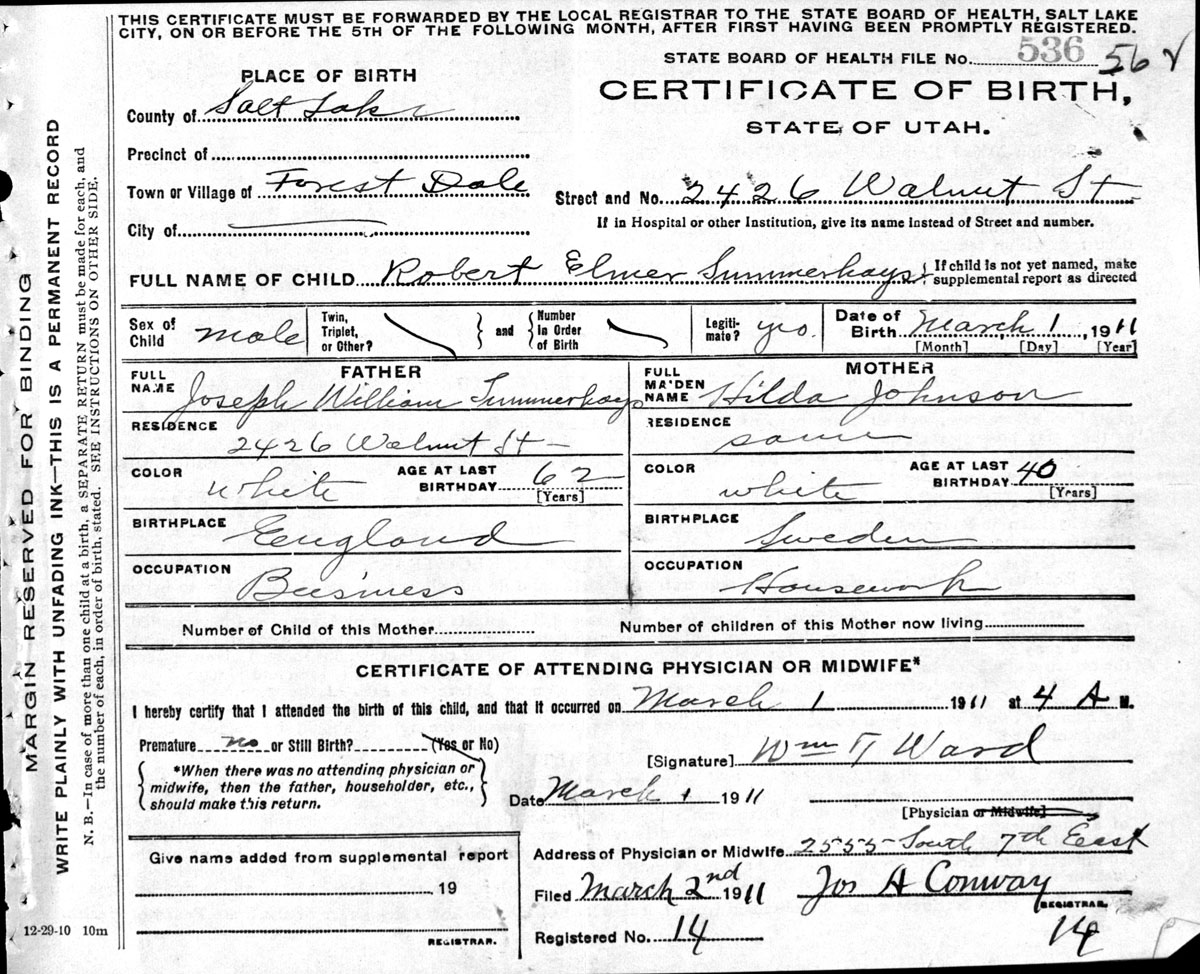 THIS CERTIFICATE MUST BE FORWARDED BY THE LOCAL REGISTRAR TO THE STATE BOARD OF HEALTH, SALT LAKE
CITY, ON OR BEFORE THE 5TH OF THE FOLLOWING MONTH, AFTER FIRST HAVING BEEN PROMPTLY REGISTERED.
STATE BOARD OF HEALTH FILE No. 536 56
PLACE OF BIRTH
CERTIFICATE OF BIRTH,
STATE OF UTAH.
County of Salt Lake
Precinct of
Town or Village of Forest Dale
Street and No. 2426 Walnut St
City of
If in Hospital or other Institution, give its name instead of Street and number.
FULL NAME OF CHILD Robert Elmer Summerhays { If child is not yet named, make
supplemental report as directed
Sex of Child male Twin, Triplet, or Other? } and { Number in Order of Birth Legiti- mate? yes Date of Birth March 1, 1911
[Month] [Day] [Year]
FATHER
MOTHER
FULL NAME Joseph William Summerhays
FULL MAIDEN NAME Hilda Johnson
RESIDENCE 2426 Walnut St
RESIDENCE same
COLOR white AGE AT LAST BIRTHDAY 62 [Years]
COLOR white AGE AT LAST BIRTHDAY 40 (Years)
BIRTHPLACE England
BIRTHPLACE Sweden
OCCUPATION Business
OCCUPATION Housework
Number of Child of this Mother
Number of children of this Mother now living
CERTIFICATE OF ATTENDING PHYSICIAN OR MIDWIFE*
I hereby certify that I attended the birth of this child, and that it occurred on March 1 1911 at 4 A M.
Premature no or Still Birth? (Yes or No)
[Signature] Wm T Ward
*When there was no attending physician or
midwife, then the father, householder, etc.,
should make this return.
Date March 1 1911
[Physician or Midwife]
Give name added from supplemental report
19
REGISTRAR.
Address of Physician or Midwife 2555 South 7th East
Filed March 2nd 1911 Jos A Conway
REGISTRAR.
Registered No. 14
14
12-29-10 10m
MARGIN RESERVED FOR BINDING
WRITE PLAINLY WITH UNFADING INK—THIS IS A PERMANENT RECORD
N. B.—In case of more than one child at a birth, a SEPARATE RETURN must be made for each, and
the number of each, in order of birth, stated. SEE INSTRUCTIONS ON OTHER SIDE.